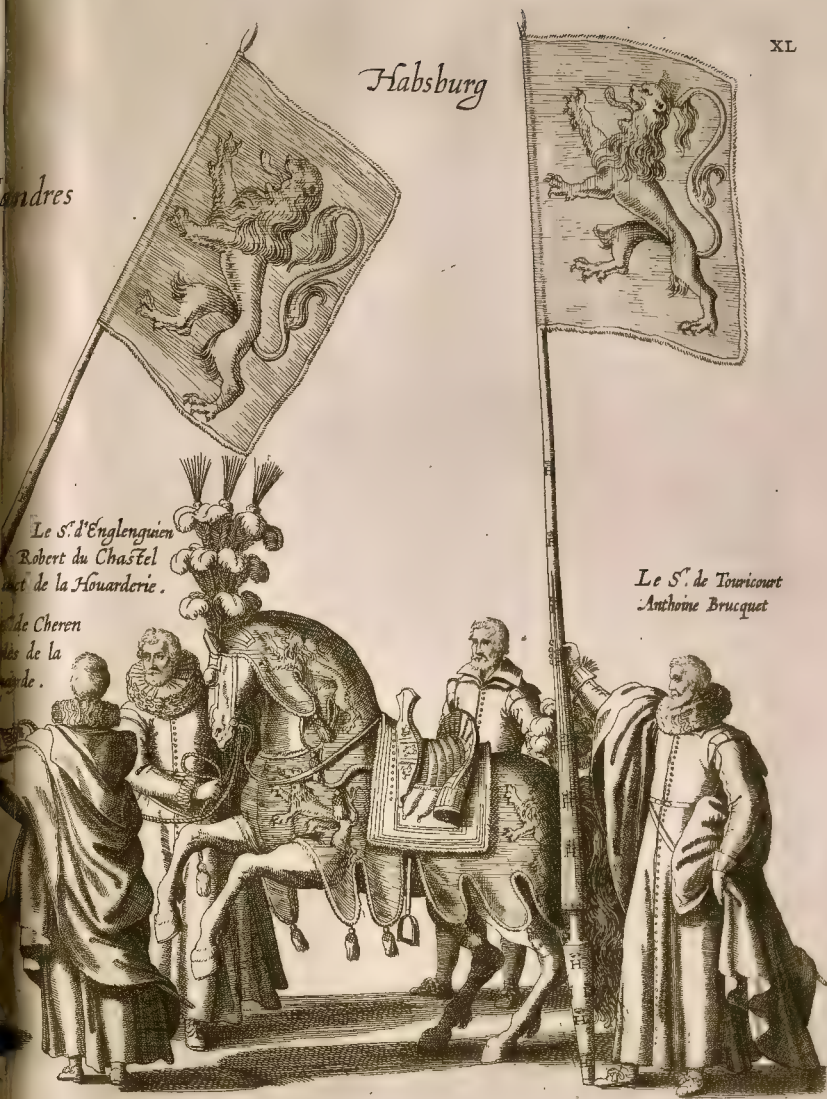 XL
Habsburg
andres
Le Sr. d'Englenguien
Robert du Chastel
dict de la Houarderie.
de Cheren
de la
Le Sr. de Touricourt
Anthoine Brucquet
H
H
H
H